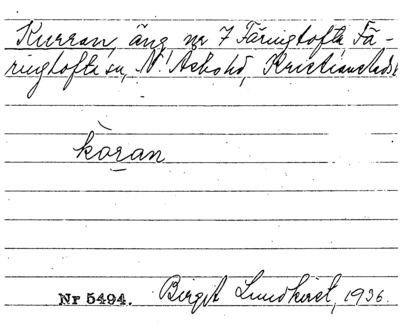 Kurran, äng nr 7 Färingtofta, Fä-
ringtofta sn, N. Åsbo hd, Kristianstads l
kòran
Nr 5494. Birgit Lundkvist, 1936.